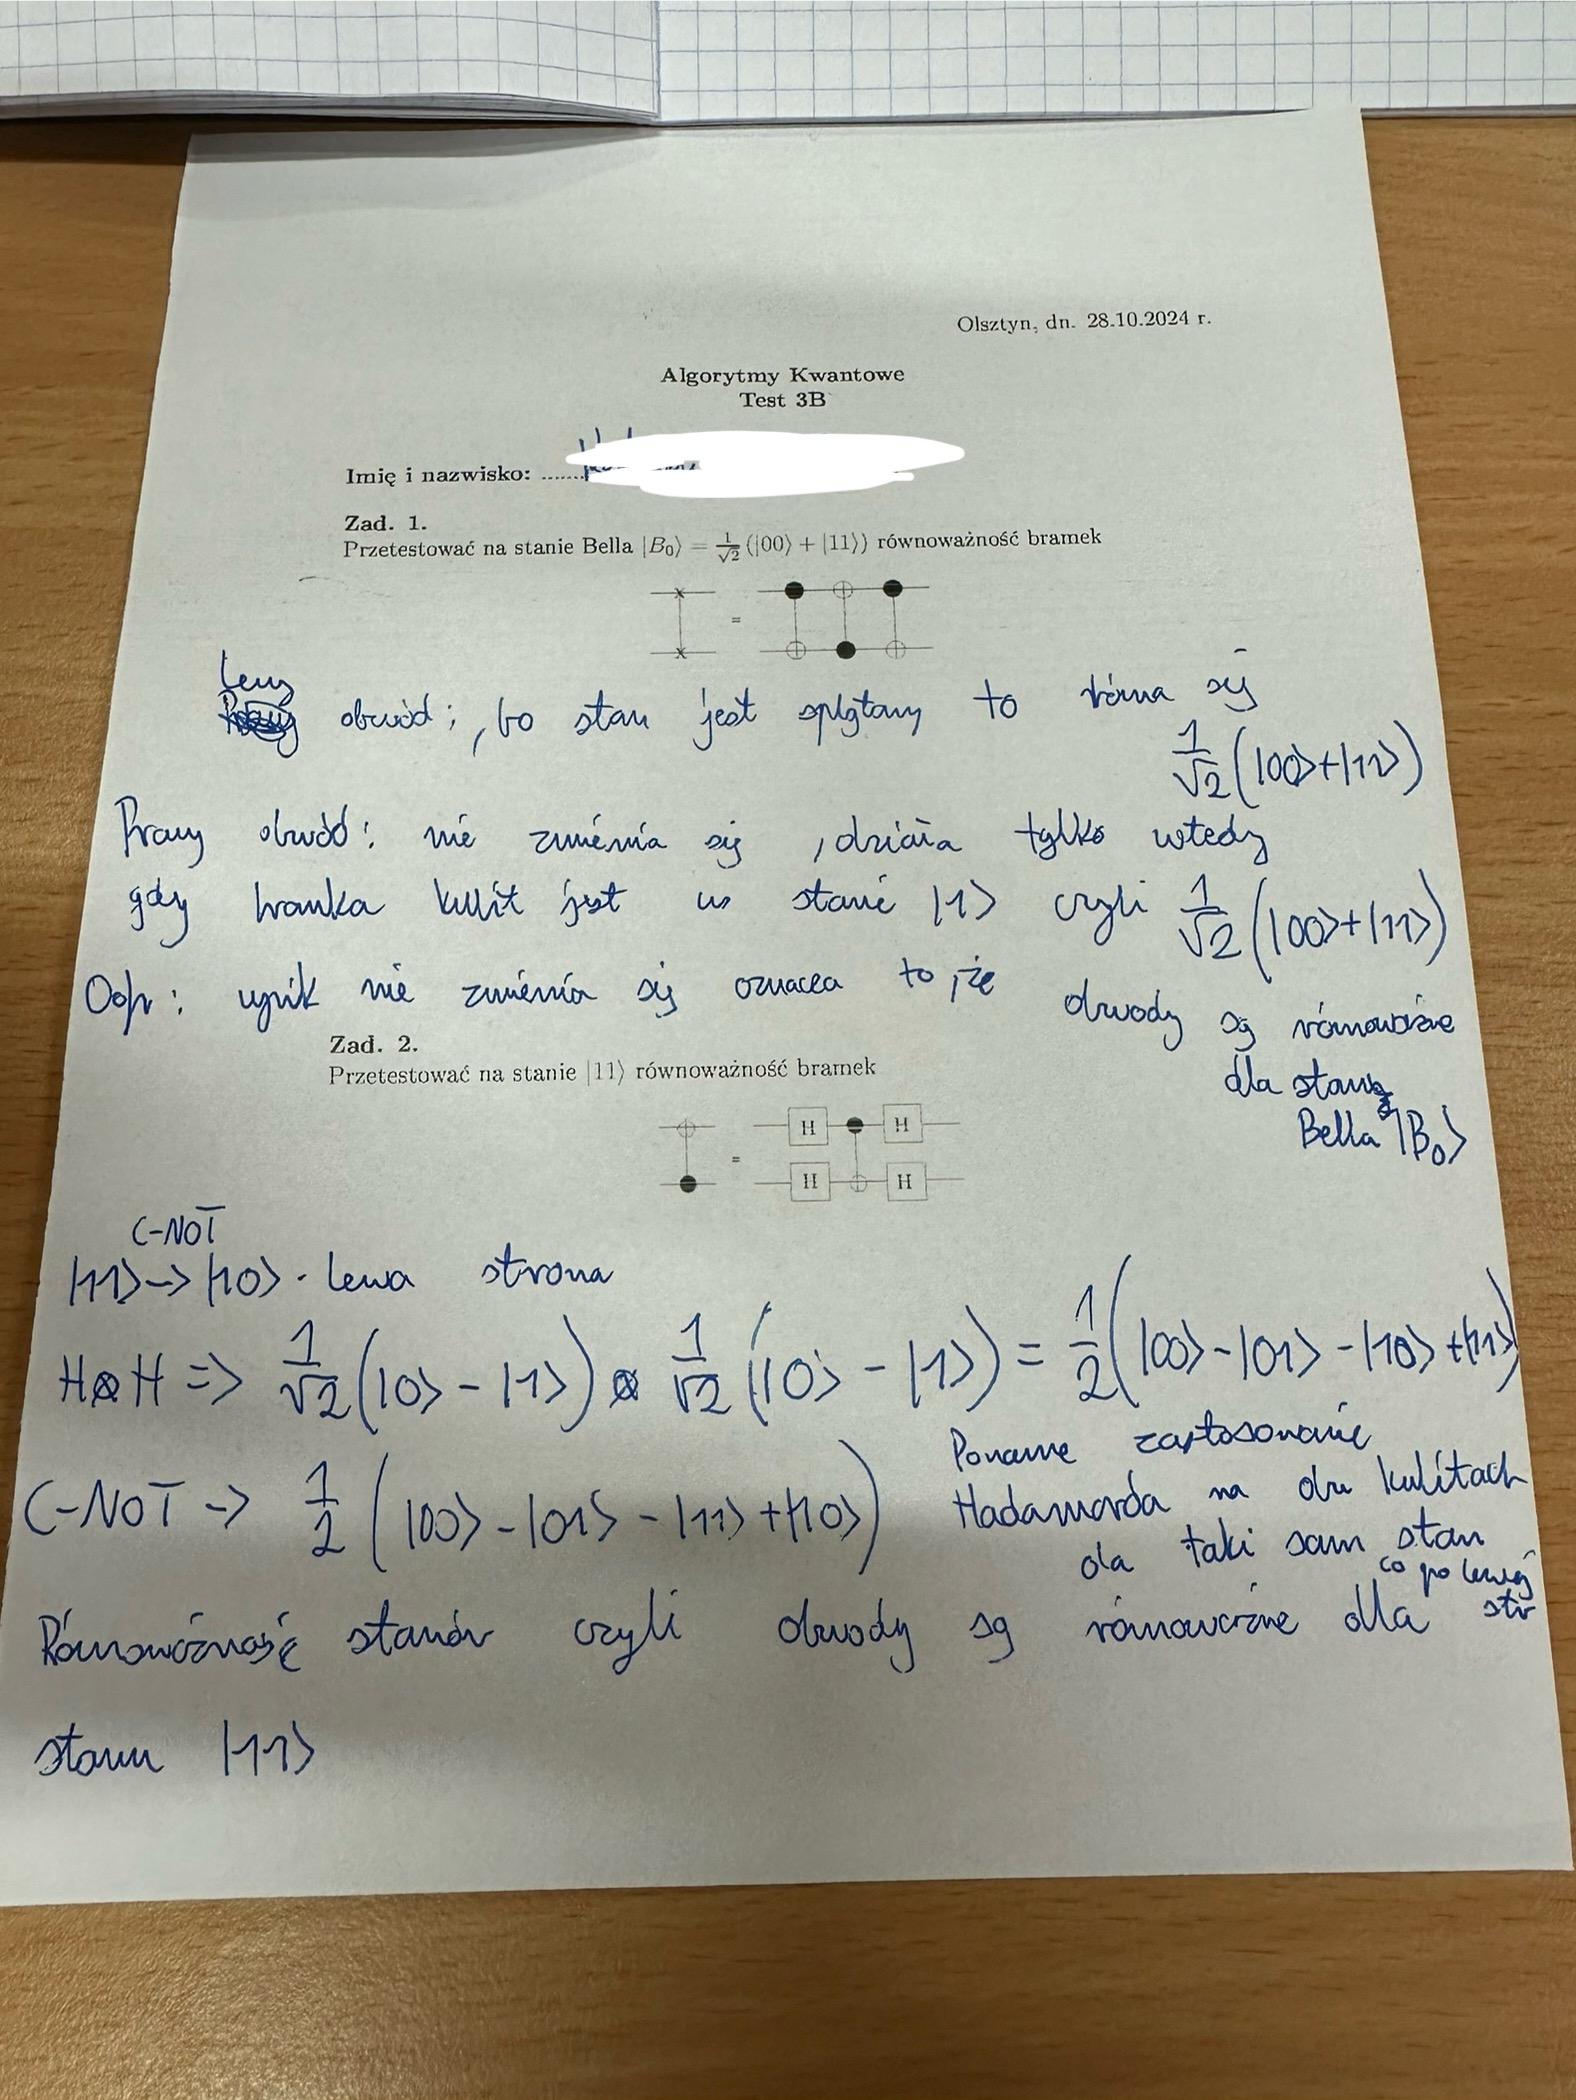 Olsztyn, dn. 28.10.2024 r.
Algorytmy Kwantowe
Test 3B
Imię i nazwisko: ........
Zad. 1.
Przetestować na stanie Bella |B₀⟩ = 1/√2 (|00⟩ + |11⟩) równoważność bramek
=
Lewy
obwód: , bo stan jest splątany to równa się
1/√2 (|00⟩+|11⟩)
Prawy obwód: nie zmienia się , działa tylko wtedy
gdy bramka kubit jest w stanie |1⟩ czyli 1/√2 (|00⟩+|11⟩)
Odp: wynik nie zmienia się oznacza to, że obwody są równoważne
dla stanu
Bella |B₀⟩
Zad. 2.
Przetestować na stanie |11⟩ równoważność bramek
H H
=
H H
C-NOT
|11⟩ -> |10⟩ - lewa strona
H⊗H => 1/√2 (|0⟩ - |1⟩) ⊗ 1/√2 (|0⟩ - |1⟩) = 1/2 (|00⟩ - |01⟩ - |10⟩ + |11⟩)
C-NOT -> 1/2 (|00⟩ - |01⟩ - |11⟩ + |10⟩)
Ponowne zastosowanie
Hadamarda na dw kubitach
da taki sam stan
co po lewej
str
Równoważność stanów czyli obwody są równoważne dla
stanu |11⟩